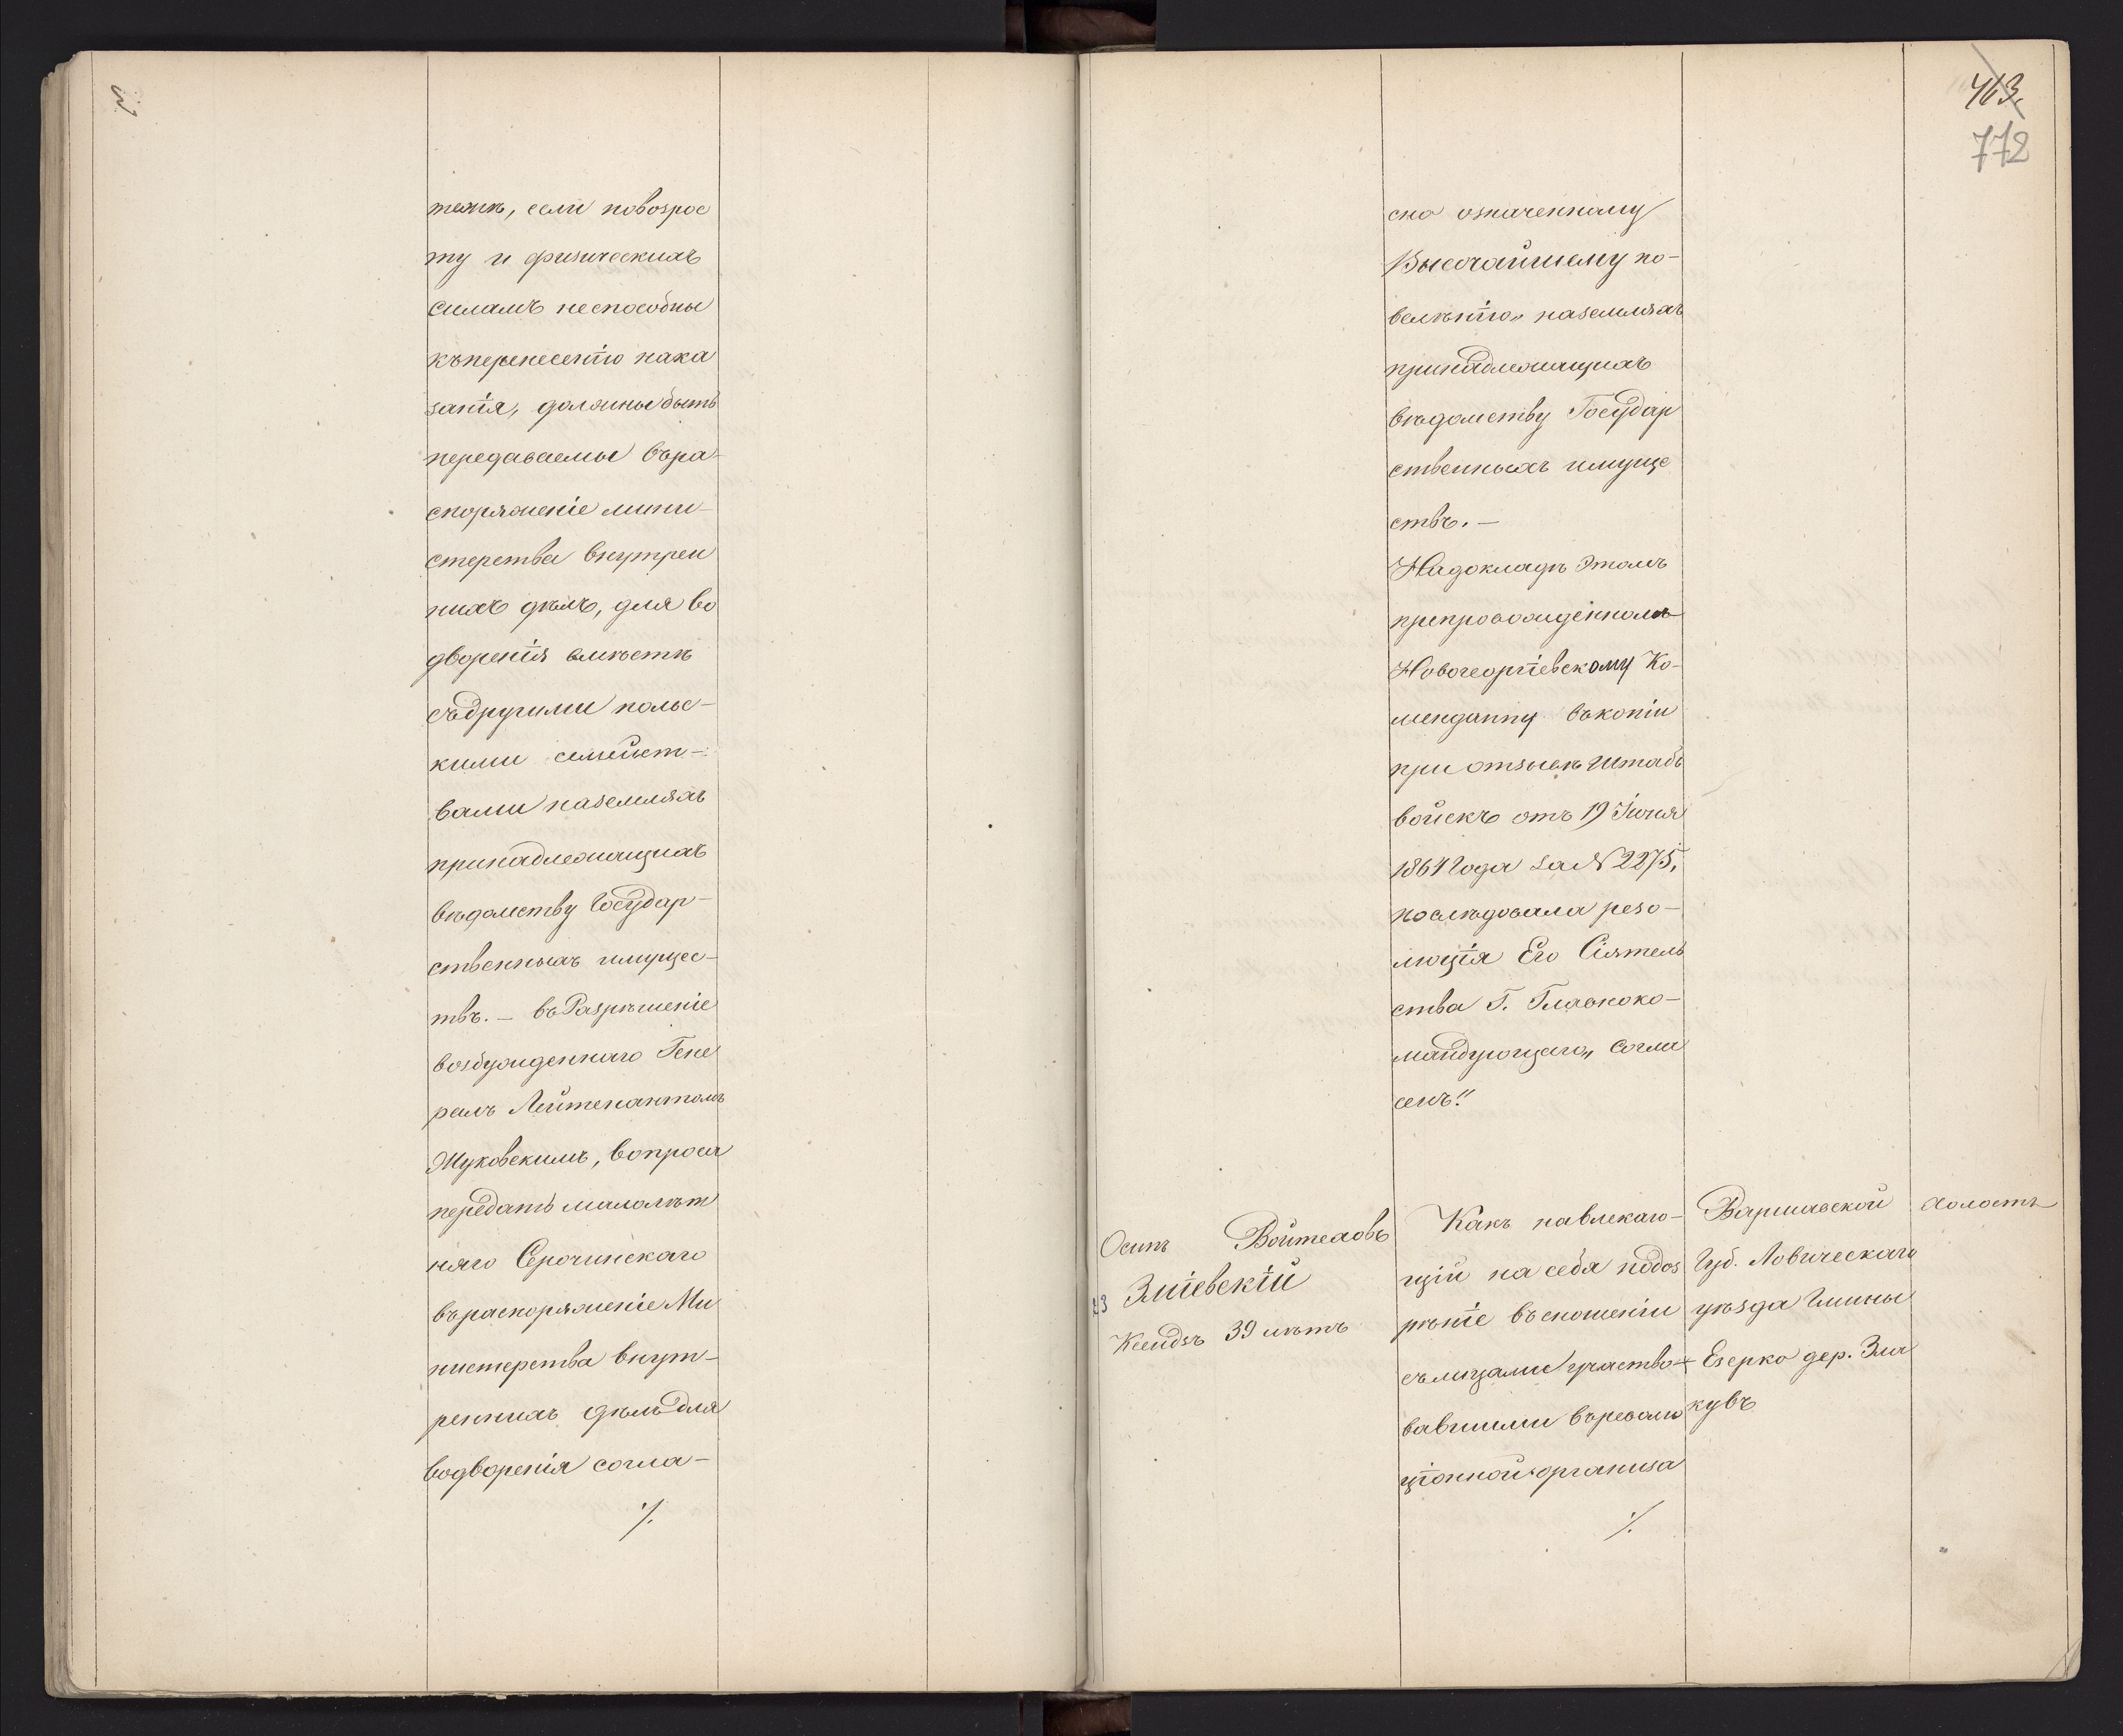 тежъ, если повозрос
ту и физическихъ
силамъ неспособны
къперенесенію нака
занія, должны быть
передаваемы въра-
споряженіе мини-
стерства внутрен
нихъ дѣлъ, для во
дворенія вмѣстѣ
съдругими польс-
кими семейст-
вами наземляхъ
принадлежащихъ
вѣдомству Государ-
ственныхъ имущес-
твъ. – въРазрѣшеніе
возбужденнаго Гене
ралъ Лейтенантомъ
Жуковскимъ, вопроса
передать малолѣт
няго Серочинскаго
въраспоряженіе Ми
нистерства внут-
реннихъ дѣлъ для
водворенія согла-
./.
463.
772
сно означенному
Высочайшему по-
велѣнію„ наземляхъ
принадлежащихъ
вѣдомству Государ
ственныхъ имуще
ствъ. –
Надокладѣ этомъ
препровожденномъ
Новогеоргіевскому Ко-
менданту въкопіи
при отзывѣ Штаба
войскъ отъ 19 Іюня
1864 года за № 2275,
послѣдовала резо-
люція Его Сіятель
ства Г. Главноко-
мандующаго„ Согла
сенъ!"
Осипъ Войтеховъ
Зміевскій
Ксендзъ 39 лѣтъ
Какъ навлекаю-
щій на себя подоз
рѣніе въсношеніи
съ лицами участво-
вавшими въревалю
ціонной организа
./.
Варшавской
Губ. Ловическаго
уѣзда Гмины
Езерко дер. Зла
кувъ
холостъ